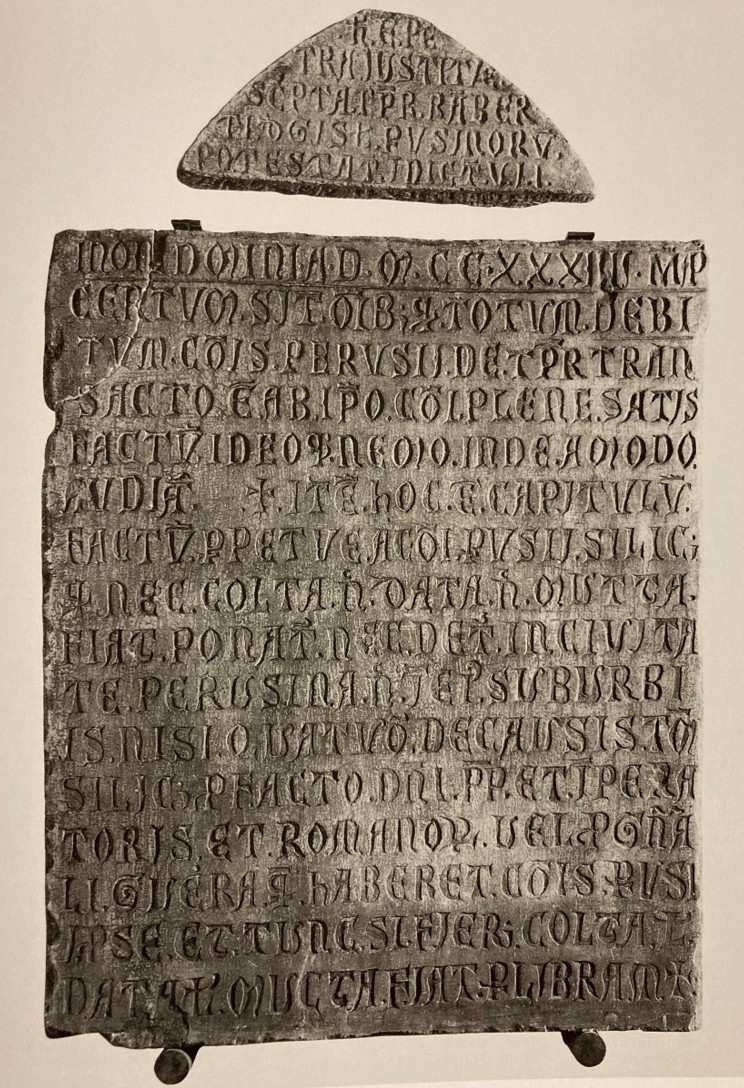 H. E. PE
TRA IUSTITIE
SCPTA. TPR. RABER
TI. D GISE. PUSIMORU.
POTESTAT. INDICT. VII.
INOI. DOMINI A. D. M. CC. XXXIIII. M P
CERTUM. SIT. OIB; TOTUM. DEBI
TUM. COIS. PERUSII. DE. TPR. TRAN
SACTO. E. ABIPO. COI. PLENE. SATIS
FACTU. IDEOQ. NEMO. INDE. AMODO
AUDIA. + ITE. HOC. E. CAPITULU.
FACTU. PPETUE. ACOI. PUSII. SILIC;
Q. NEC. COLTA. N. DATA. N. MUTTA.
FIAT. PONAT. NEC. DET. IN CIVITA
TE. PERUSINA. N. I EI. SUBURBI
IS. NISI. QUATUO. DE CAUSIS. TM
SILIC;. P FACTO. DNI. PP. ET. IPERA
TORIS. ET. ROMANOR. VEL. P GNA
LI. GUERA. Q. HABERET. COIS. PUSI
PSE. ET. TUNC. SI. FIER;. COLTA. L
DATA. MUCTA. FIAT. P LIBRAM +